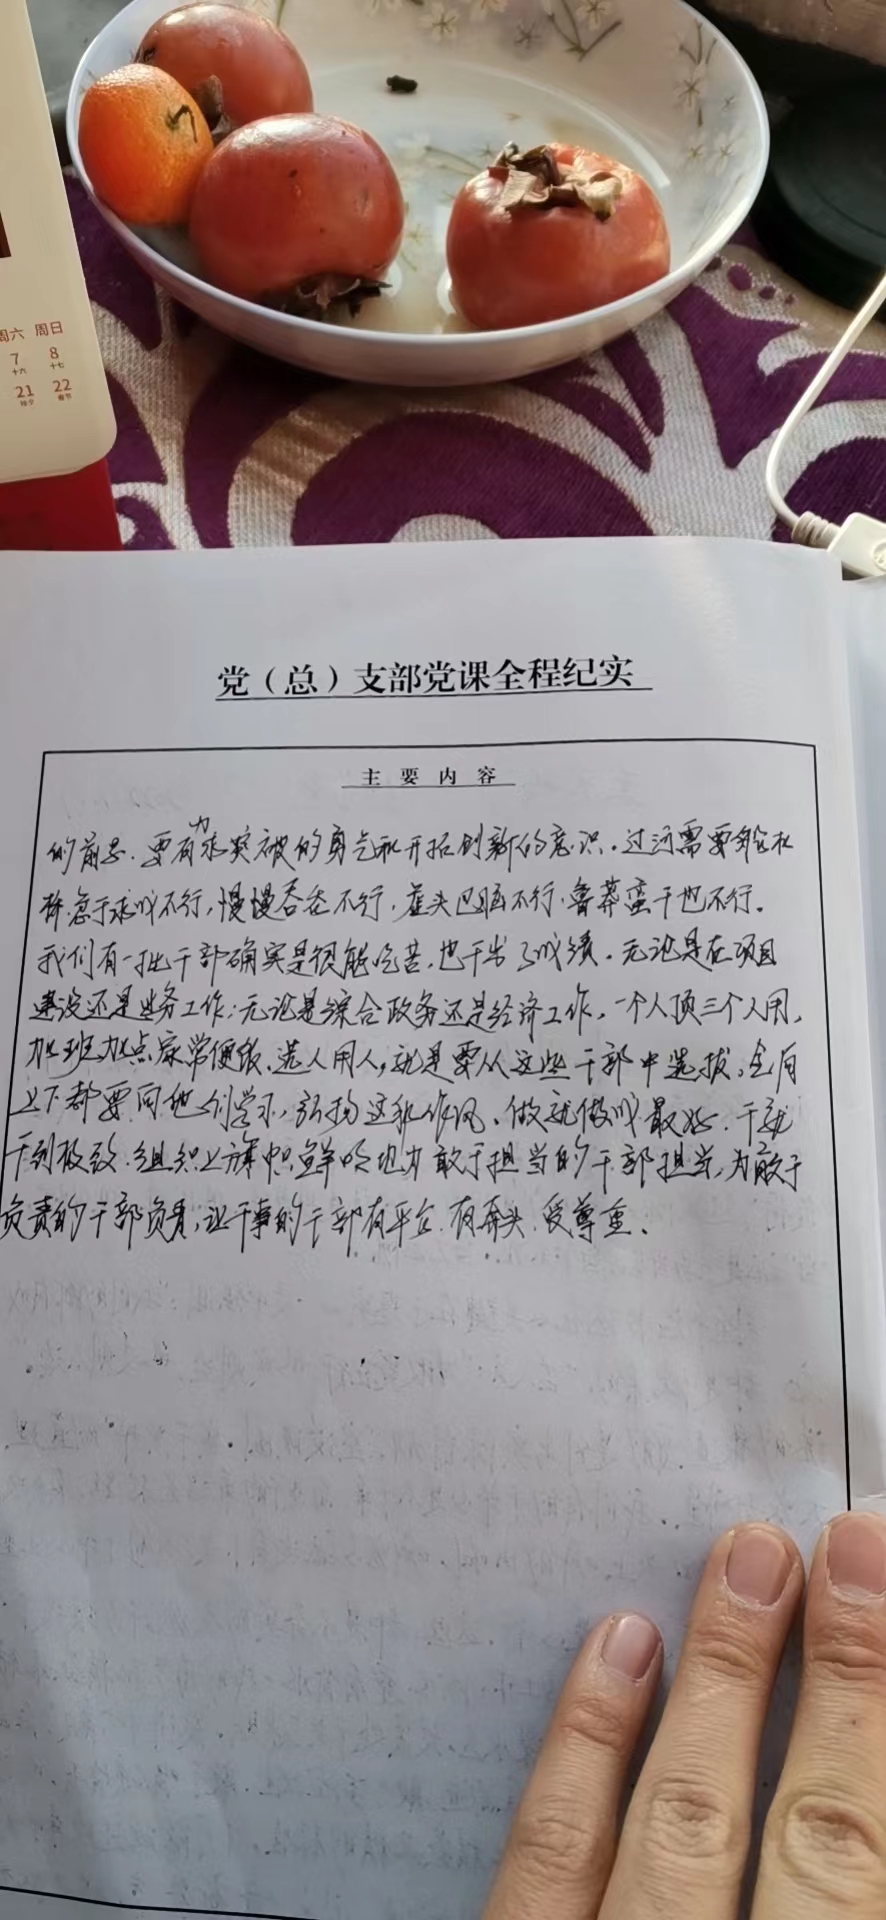 周六 周日
7 8
十六 十七
21 22
除夕 春节
党（总）支部党课全程纪实
主要内容
的前提，要有力求突破的勇气和开拓创新的意识。过河需要船和
桥，急于求成不行，慢慢吞吞不行，昏头巴脑不行，鲁莽蛮干也不行。
我们有一批干部确实是很能吃苦，也干出了成绩。无论是在项目
建设还是业务工作；无论是综合政务还是经济工作，一个人顶三个人用，
加班加点家常便饭。选人用人，就是要从这些干部中选拔，全局
上下都要向他们学习，弘扬这种作风，做就做成最好，干就
干到极致，组织上旗帜鲜明地为敢于担当的干部担当，为敢于
负责的干部负责，让干事的干部有平台、有奔头、受尊重。